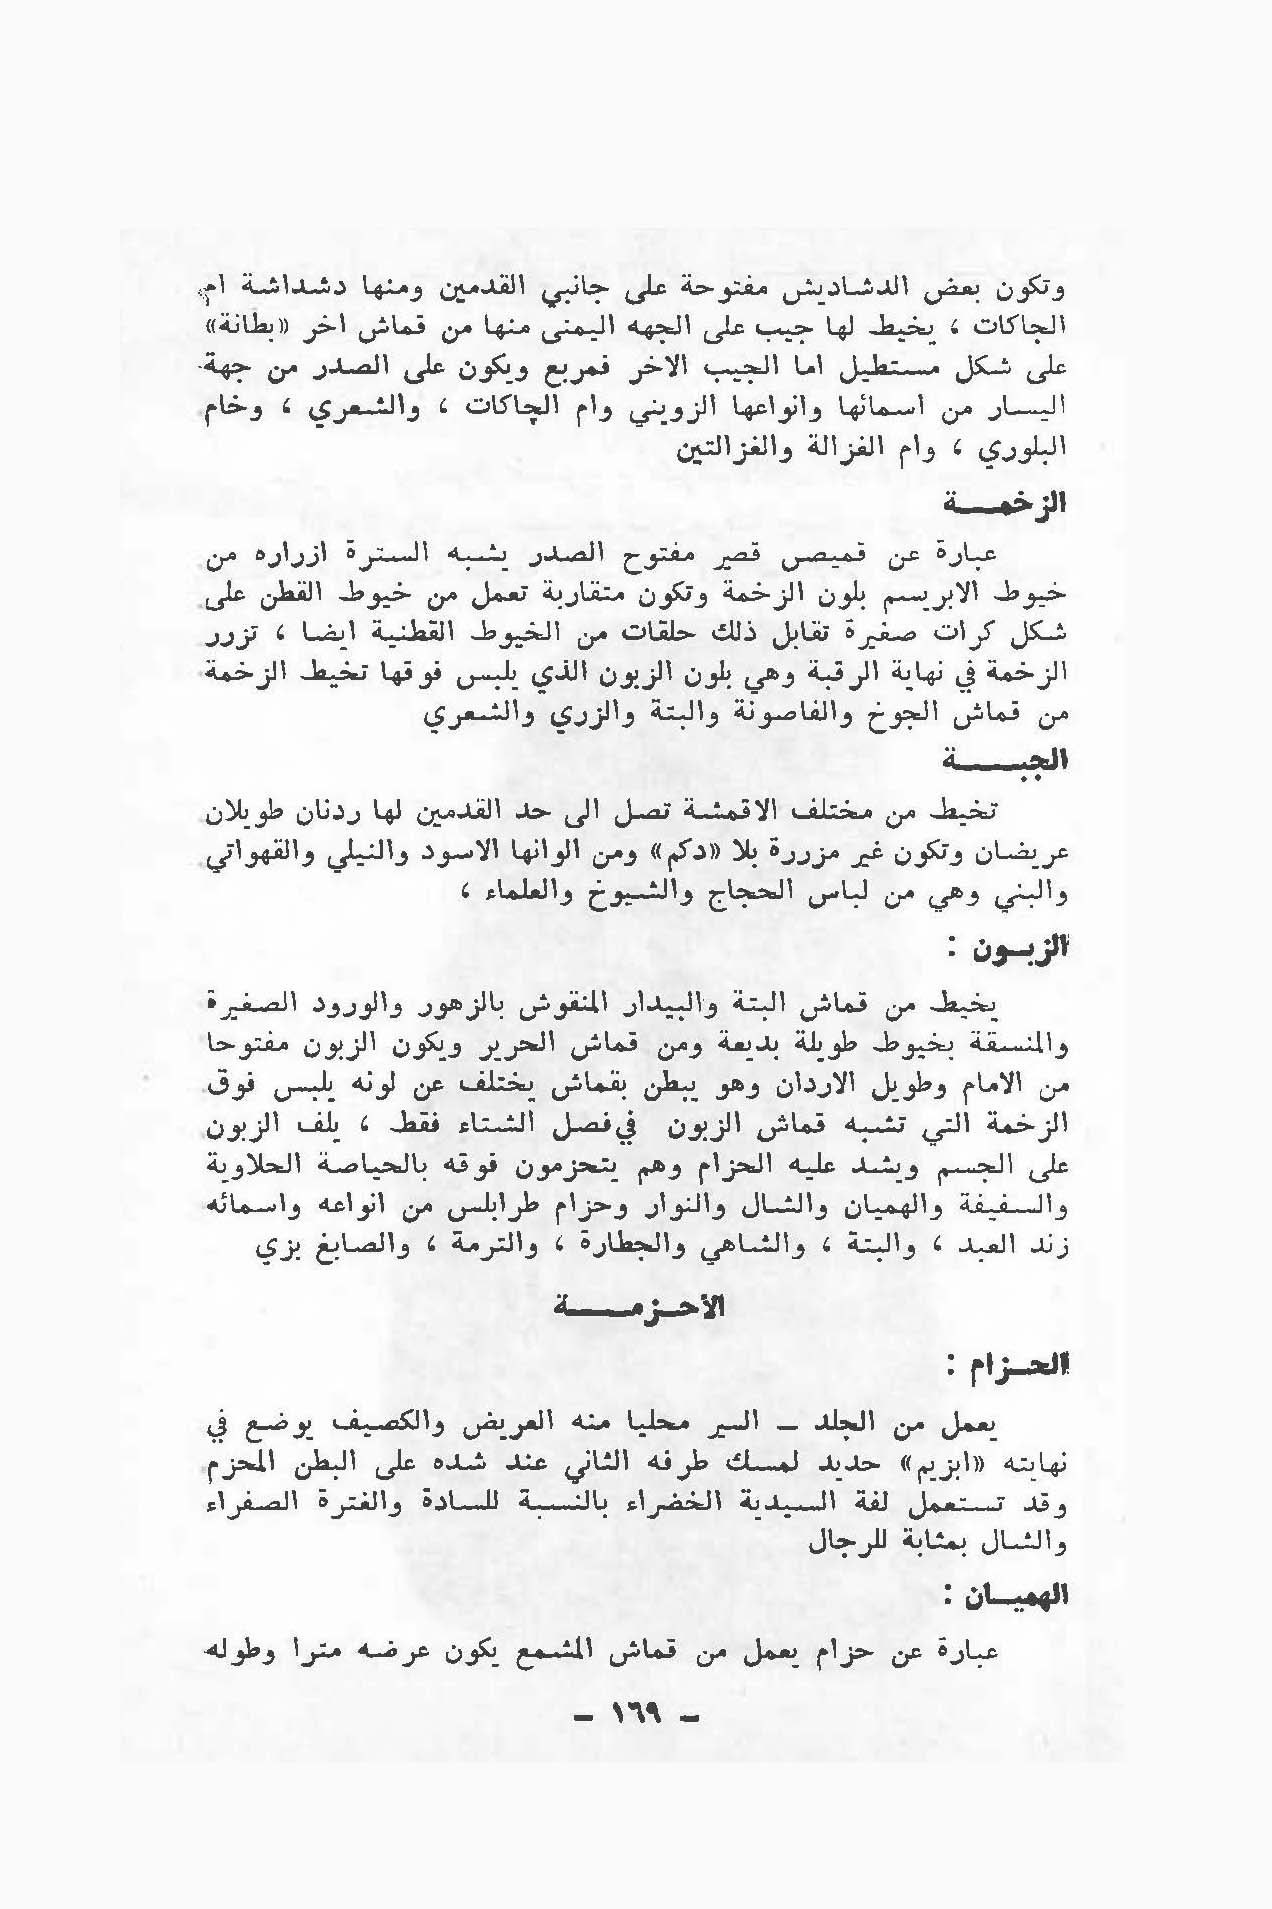 وتكون بعض الدشاديش مفتوحة على جانبي القدمين ومنها دشداشة ام
الچاكات ، يخيط لها جيب على الجهه اليمنى منها من قماش اخر «بطانة»
على شكل مستطيل اما الجيب الاخر فمربع ويكون على الصدر من جهة
اليسار من اسمائها وانواعها الزويني وام الچاكات ، والشعري ، وخام
البلوري ، وام الغزالة والغزالتين
الزخمـــة
عبارة عن قميص قصير مفتوح الصدر يشبه السترة ازراره من
خيوط الابريسم بلون الزخمة وتكون متقاربة تعمل من خيوط القطن على
شكل كرات صغيرة تقابل ذلك حلقات من الخيوط القطنية ايضا ، تزرر
الزخمة في نهاية الرقبة وهي بلون الزبون الذي يلبس فوقها تخيط الزخمة
من قماش الجوخ والفاصونة والبتة والزري والشعري
الجبــــة
تخيط من مختلف الاقمشة تصل الى حد القدمين لها ردنان طويلان
عريضان وتكون غير مزررة بلا «دكم» ومن الوانها الاسود والنيلي والقهواتي
والبني وهي من لباس الحجاج والشيوخ والعلماء ،
الزبـون :
يخيط من قماش البتة والبيدار المنقوش بالزهور والورود الصغيرة
والمنسقة بخيوط طويلة بديعة ومن قماش الحرير ويكون الزبون مفتوحا
من الامام وطويل الاردان وهو يبطن بقماش يختلف عن لونه يلبس فوق
الزخمة التي تشبه قماش الزبون في فصل الشتاء فقط ، يلف الزبون
على الجسم ويشد عليه الحزام وهم يتحزمون فوقه بالحياصة الحلاوية
والسفيفة والهميان والشال والنوار وحزام طرابلس من انواعه واسمائه
زند العبد ، والبتة ، والشاهي والجطارة ، والترمة ، والصابغ بزي
الأحـزمـــة
الحـزام :
يعمل من الجلد – السير محليا منه العريض والكصيف يوضع في
نهايته «ابزيم» حديد لمسك طرفه الثاني عند شده على البطن المحزم
وقد تستعمل لفة السيدية الخضراء بالنسبة للسادة والغترة الصفراء
والشال بمثابة للرجال
الهميـان :
عبارة عن حزام يعمل من قماش المشمع يكون عرضه مترا وطوله
– ١٦٩ –